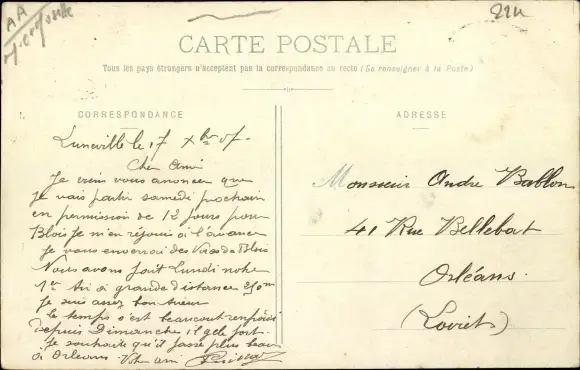 AA
22u
CARTE POSTALE
Tous les pays étrangers n'acceptent pas la correspondance au recto (Se renseigner à la Poste)
CORRESPONDANCE
Luneville le 17 Xbre 07.
Cher Ami
Je viens vous anoncer que
Je vais partir samedi prochain
en permission de 12 jours pour
Blois je m'en réjouis à l'avance
Je vous enverai des Vues de Blois
Nous avons fait Lundi notre
1er tir à grande distance 250m
Je suis assez bon tireur
Le temps s'est beaucoup refroidi
depuis Dimanche il gele fort.
Je souhaite qu'il fasse plus beau
à Orleans. Votre ami
ADRESSE
Monsieur Andre Bablon
41 Rue Bellebat
Orléans.
(Loiret)